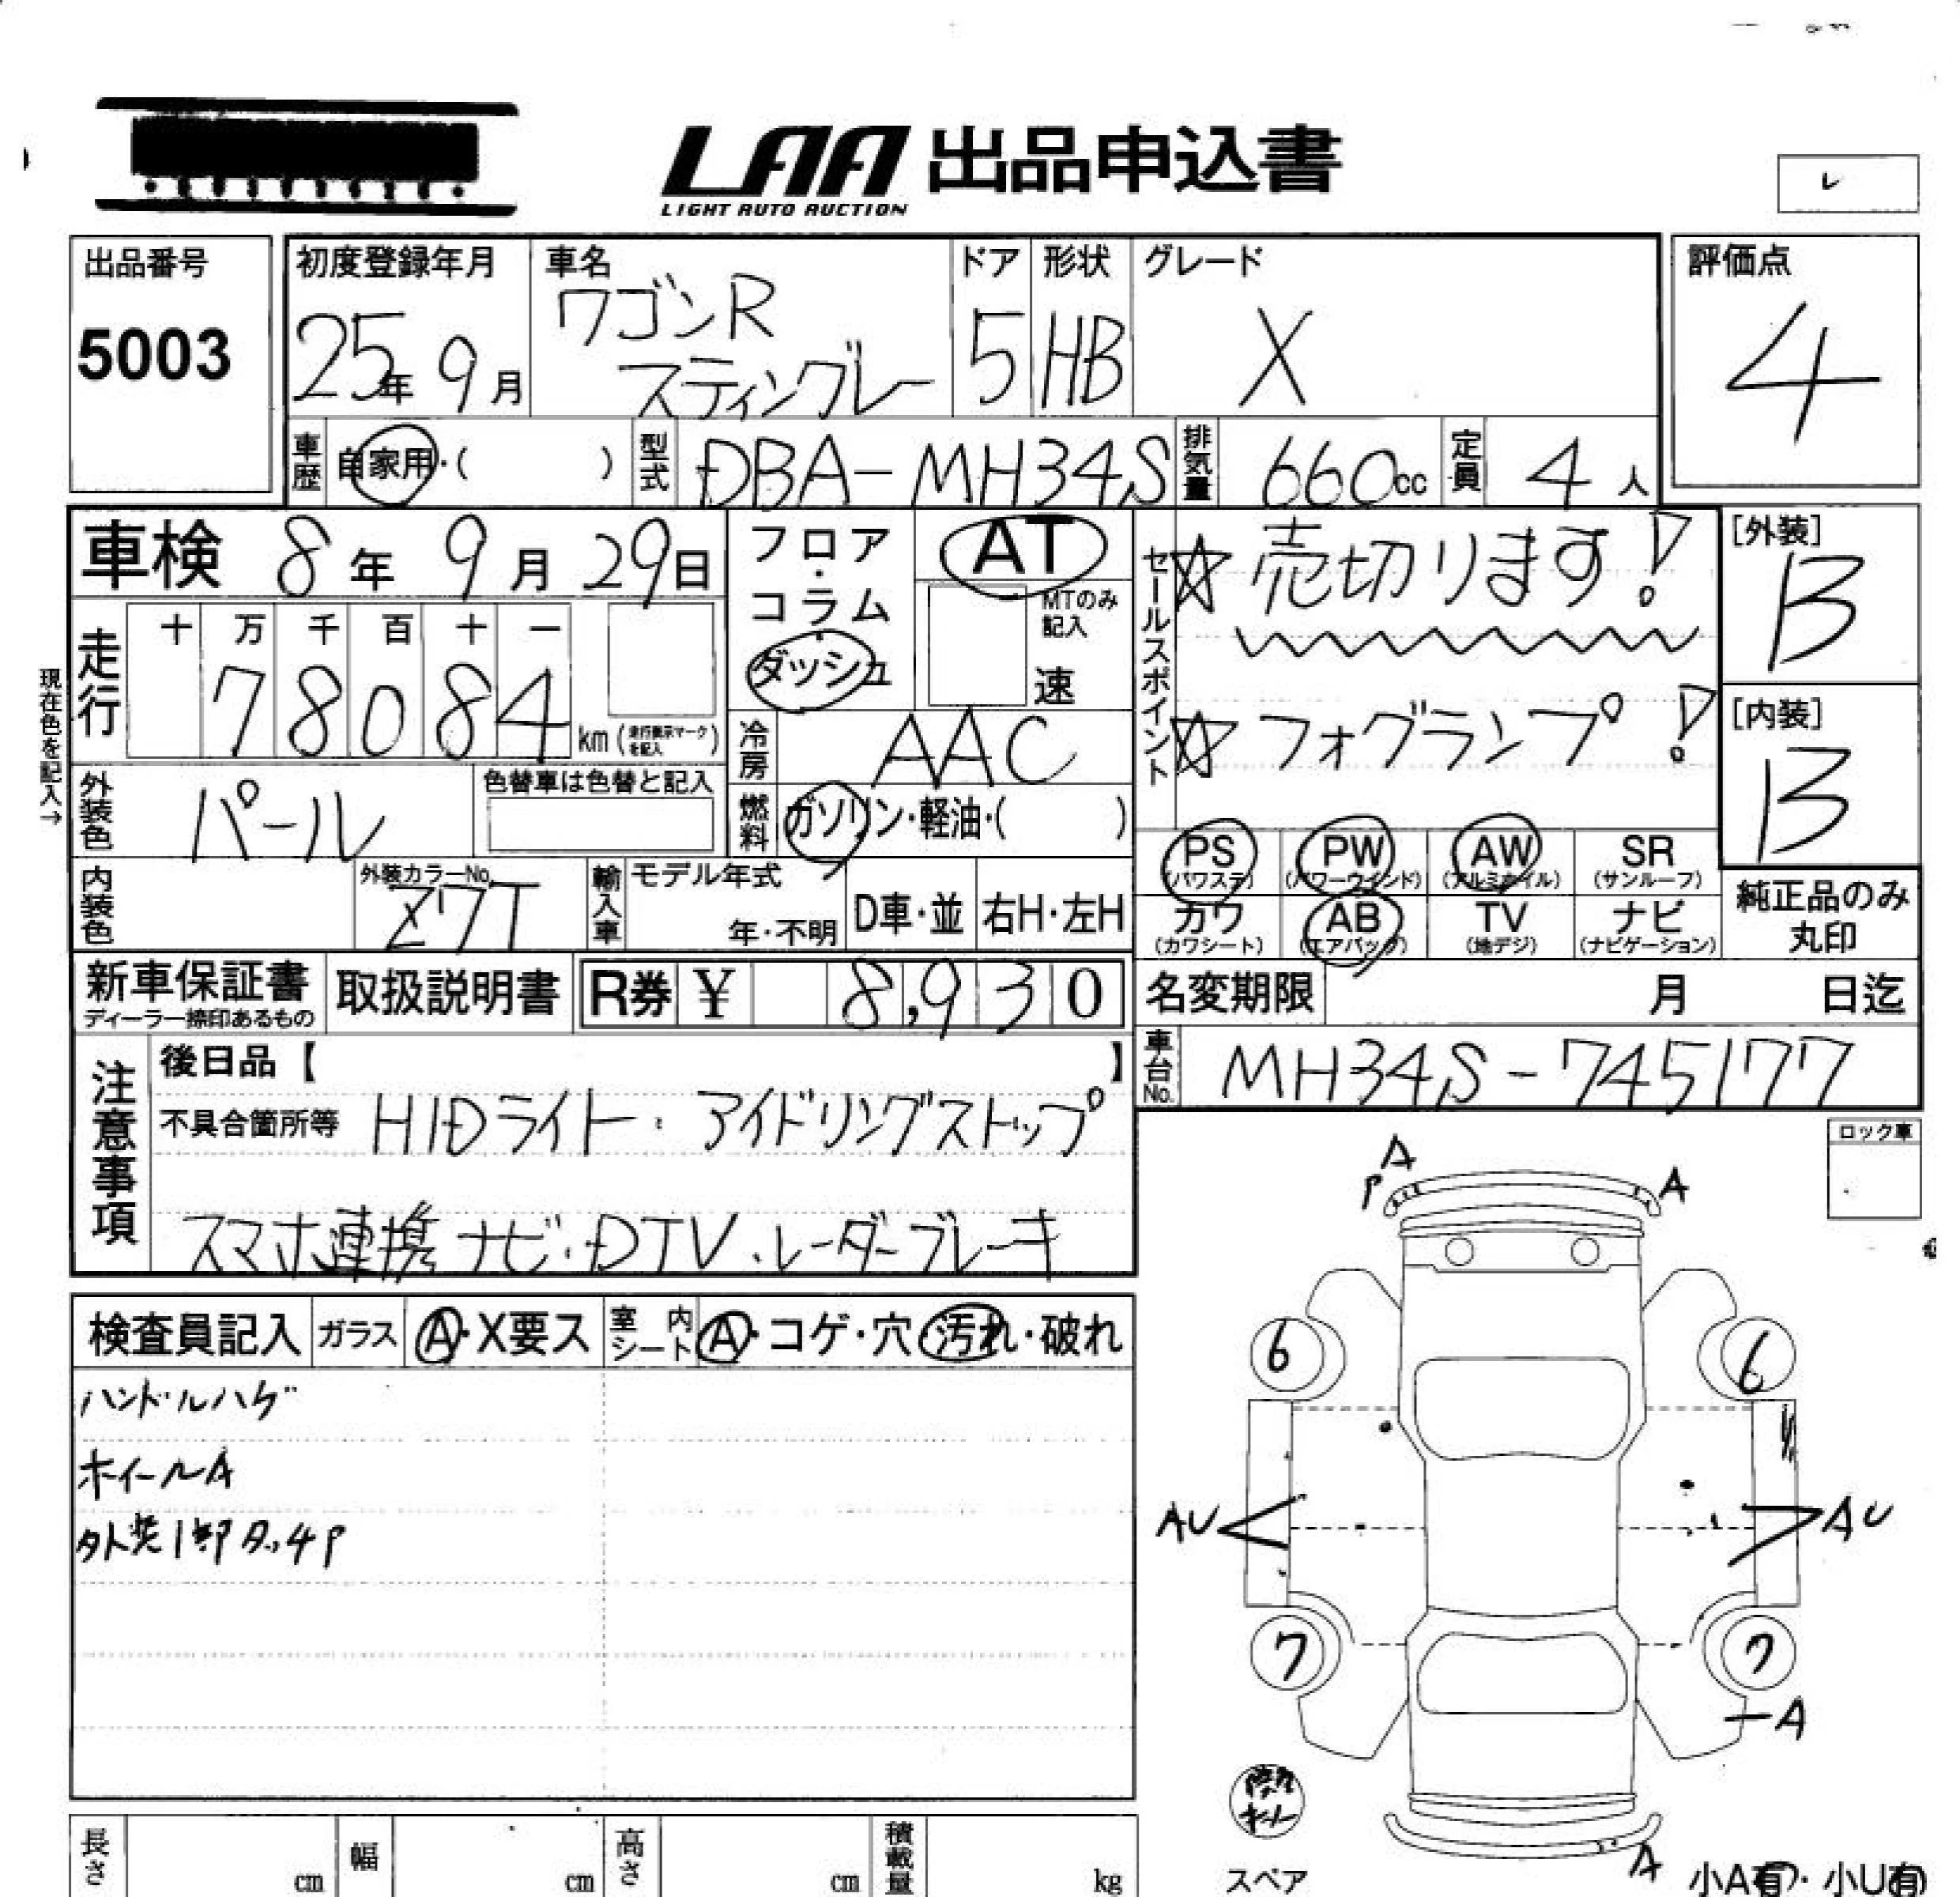 LAA 出品申込書
LIGHT AUTO AUCTION
レ
出品番号
5003
初度登録年月
25年 9月
車名
ワゴンR
スティングレー
ドア
5
形状
HB
グレード
X
評価点
4
車歴 自家用・( )
型式 DBA-MH34S
排気量 660cc
定員 4人
車検 8年 9月 29日
フロア・コラム・ダッシュ
AT
MTのみ記入
速
セールスポイント
☆売切ります!
☆フォグランプ!
[外装]
B
[内装]
B
現在色を記入→
走行
十 万 千 百 十 一
7 8 0 8 4 km(走行表示マークを記入)
冷房 AAC
外装色 パール
色替車は色替と記入
燃料 ガソリン・軽油・( )
内装色
外装カラーNo.
Z7T
輸入車
モデル年式
年・不明
D車・並
右H・左H
PS (パワステ)
PW (パワーウインド)
AW (アルミホイル)
SR (サンルーフ)
カワ (カワシート)
AB (エアバッグ)
TV (地デジ)
ナビ (ナビゲーション)
純正品のみ丸印
新車保証書
ディーラー捺印あるもの
取扱説明書
R券 ¥ 8,930
名変期限 月 日迄
車台No. MH34S-745177
注意事項
後日品【 】
不具合箇所等 HIDライト・アイドリングストップ
スマホ連携ナビ・DTV・レーダーブレーキ
ロック車
検査員記入
ガラス A・X要ス
室内シート A・コゲ・穴・汚れ・破れ
ハンドルハゲ
ホイールA
外装1部タッチP
A
P
A
6
6
AU
AU
7
7
A
A
スペア
小A有・小U有
長さ cm
幅 cm
高さ cm
積載量 kg